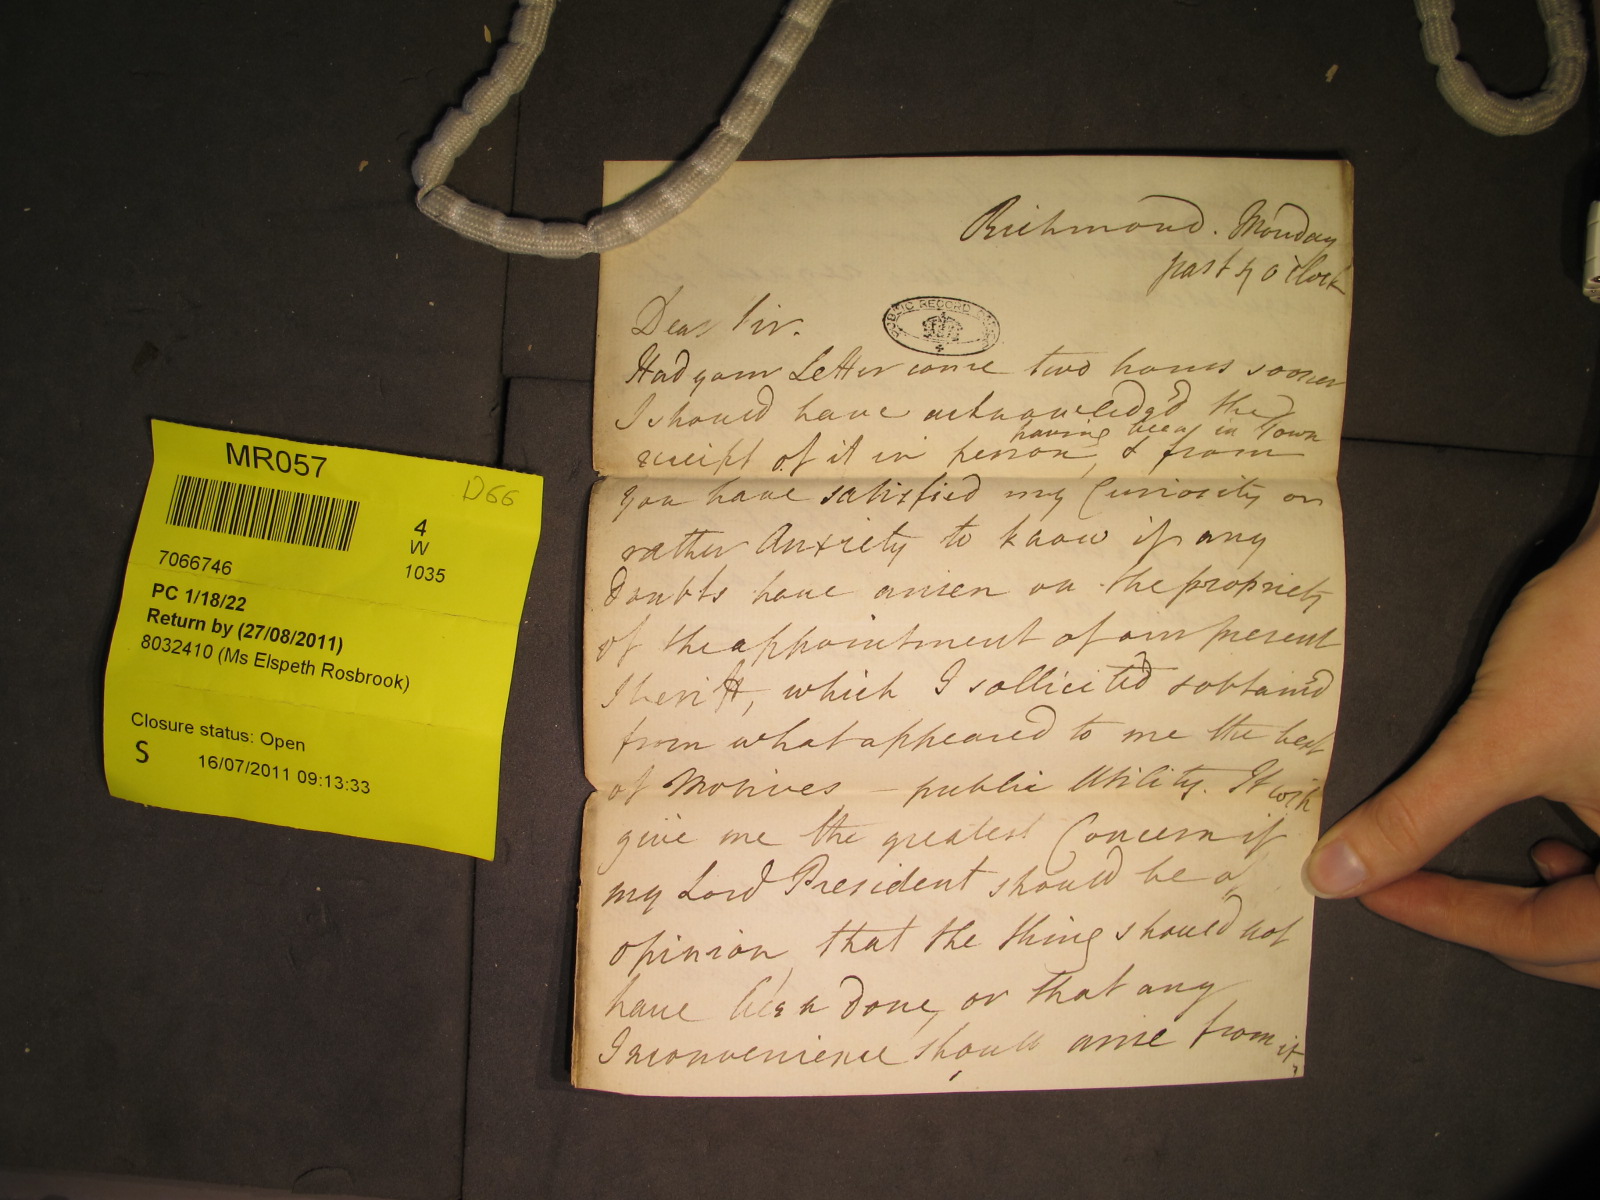 Richmond. Monday
past 4 o'Clock
PUBLIC RECORD OFFICE
Dear Sir.
Had your Letter come two hours sooner
I should have acknowledg'd the
having been in Town
receipt of it in person, & from
you have satisfied my Curiosity or
rather Anxiety to know if any
Doubts have arisen on the propriety
of the appointment of our present
Sheriff, which I sollicited & obtain'd
from what appeared to me the best
of Motives - public Utility. It will
give me the greatest Concern if
my Lord President should be of
opinion, that the thing should not
have been done, or that any
Inconvenience should arise from it,
MR057
D66
4
W
1035
7066746
PC 1/18/22
Return by (27/08/2011)
8032410 (Ms Elspeth Rosbrook)
Closure status: Open
S
16/07/2011 09:13:33